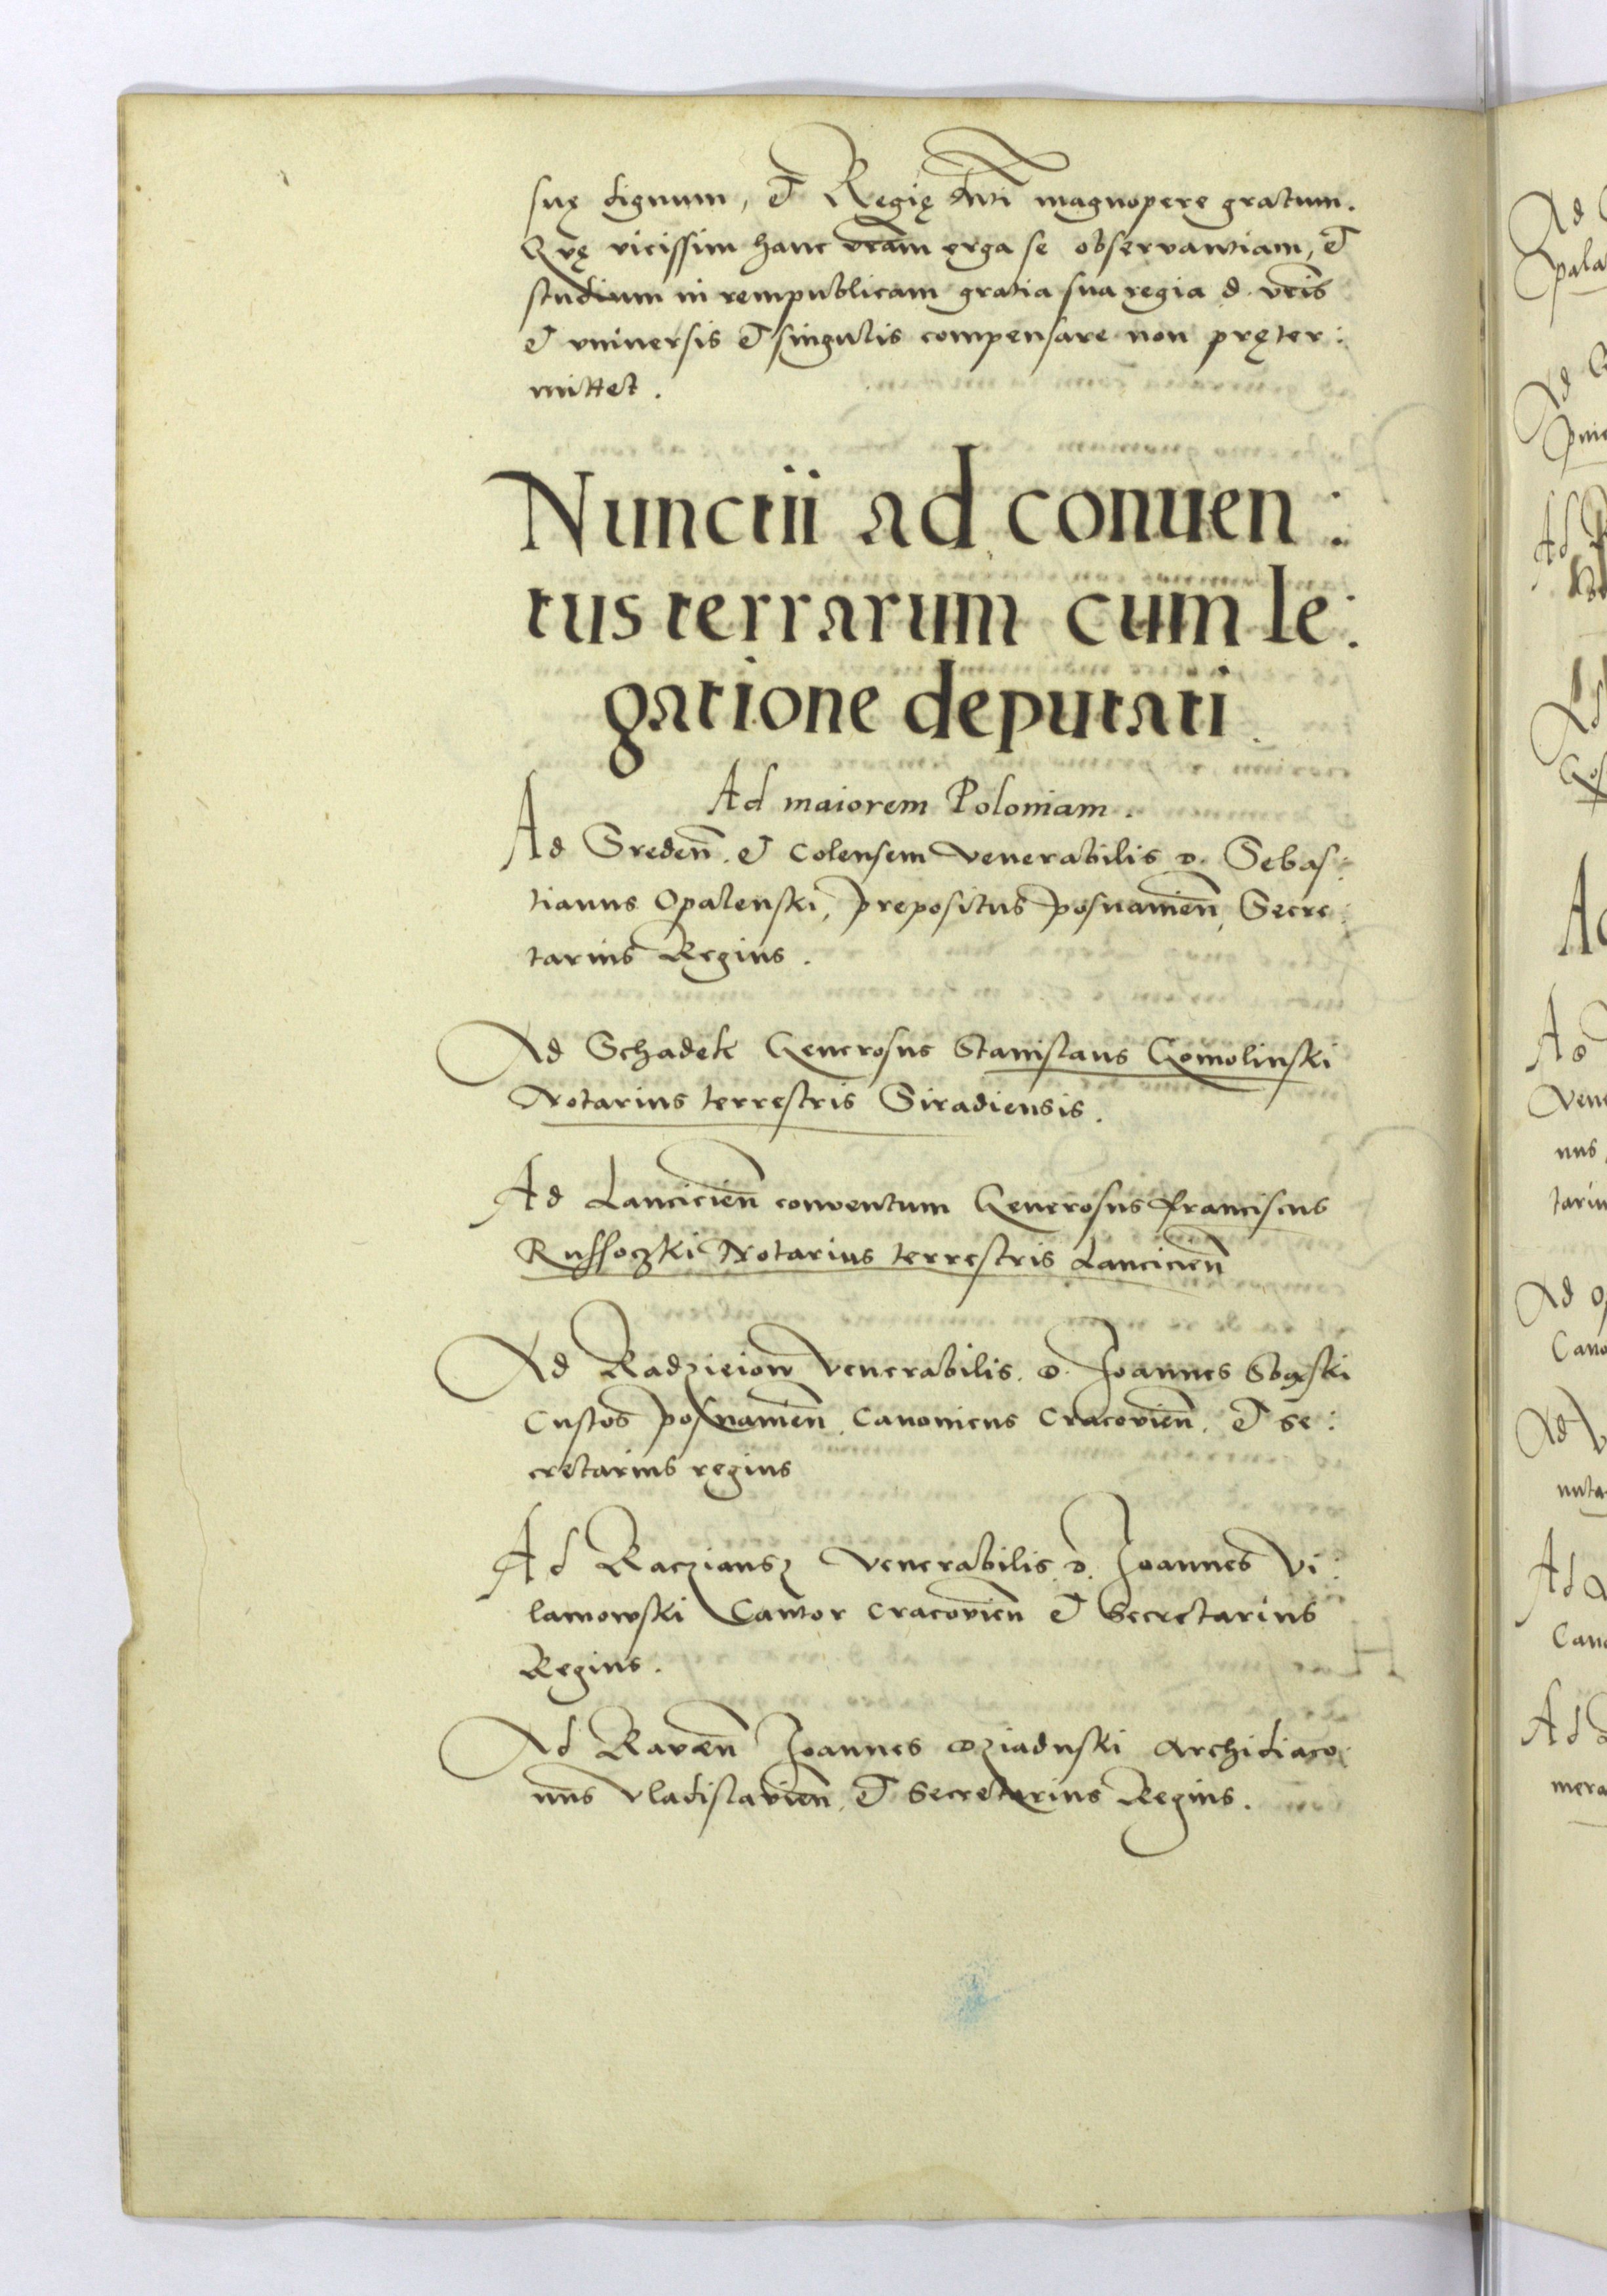 suę dignum, et Regię Mti magnopere gratum.
Quę vicissim hanc vram erga se observantiam, et
studium in rempublicam gratia sua regia d. vris
et vniversis et singulis compensare non pręter:
mittet.
Nunctii ad conuen:
tus terrarum cum le:
gatione deputati.
Ad maiorem Poloniam.
Ad Sreden. et Colensem venerabilis D. Sebas:
tianus Opalenski, prepositus posnanien, Secre:
tarius Regius.
Ad Schadek Generosus Stanislaus Gomolinski
Notarius terrestris Siradiensis.
Ad Lancicien conventum Generosus Franciscus
Russoczki Notarius terrestris Lancicien
Ad Radzieiow venerabilis. D. Joannes Sbąski
Custos posnanien. Canonicus Cracovien. et Se:
cretarius regius
Ad Racziansz venerabilis. D. Joannes Vi:
lamowski Cantor Cracovien et Secretarius
Regius.
Ad Raven Joannes Dziaduski Archidiaco:
nus Vladislavien. et Secretarius Regius.